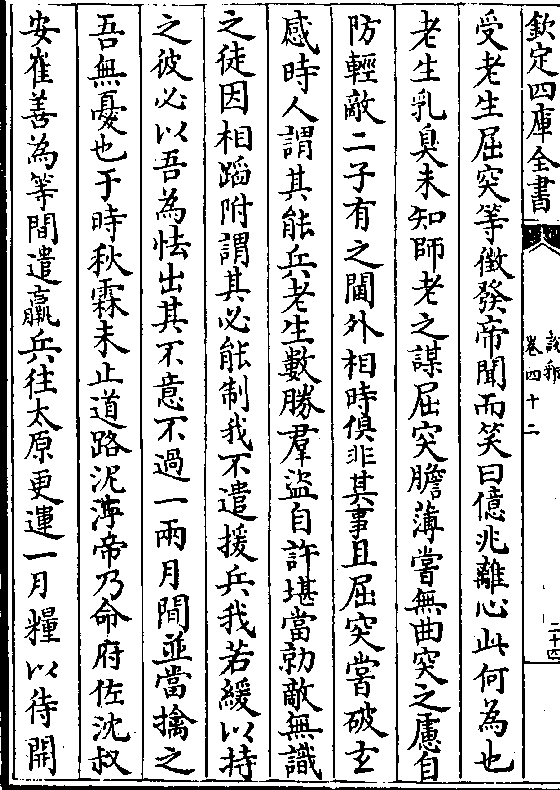 欽定四庫全書
卷四十二
二十四
受老生屈突等徵發帝聞而笑曰億兆離心此何為也
老生乳臭未知師老之謀屈突膽薄嘗無曲突之慮自
防輕敵二子有之閫外相時俱非其事且屈突嘗破玄
感時人謂其能兵老生數勝羣盜自許堪當勍敵無識
之徒因相蹈附謂其必能制我不遣援兵我若緩以持
之彼必以吾為怯出其不意不過一兩月間並當擒之
吾無憂也于時秋霖未止道路泥濘帝乃命府佐沈叔
安崔善為等間遣羸兵往太原更運一月糧以待開